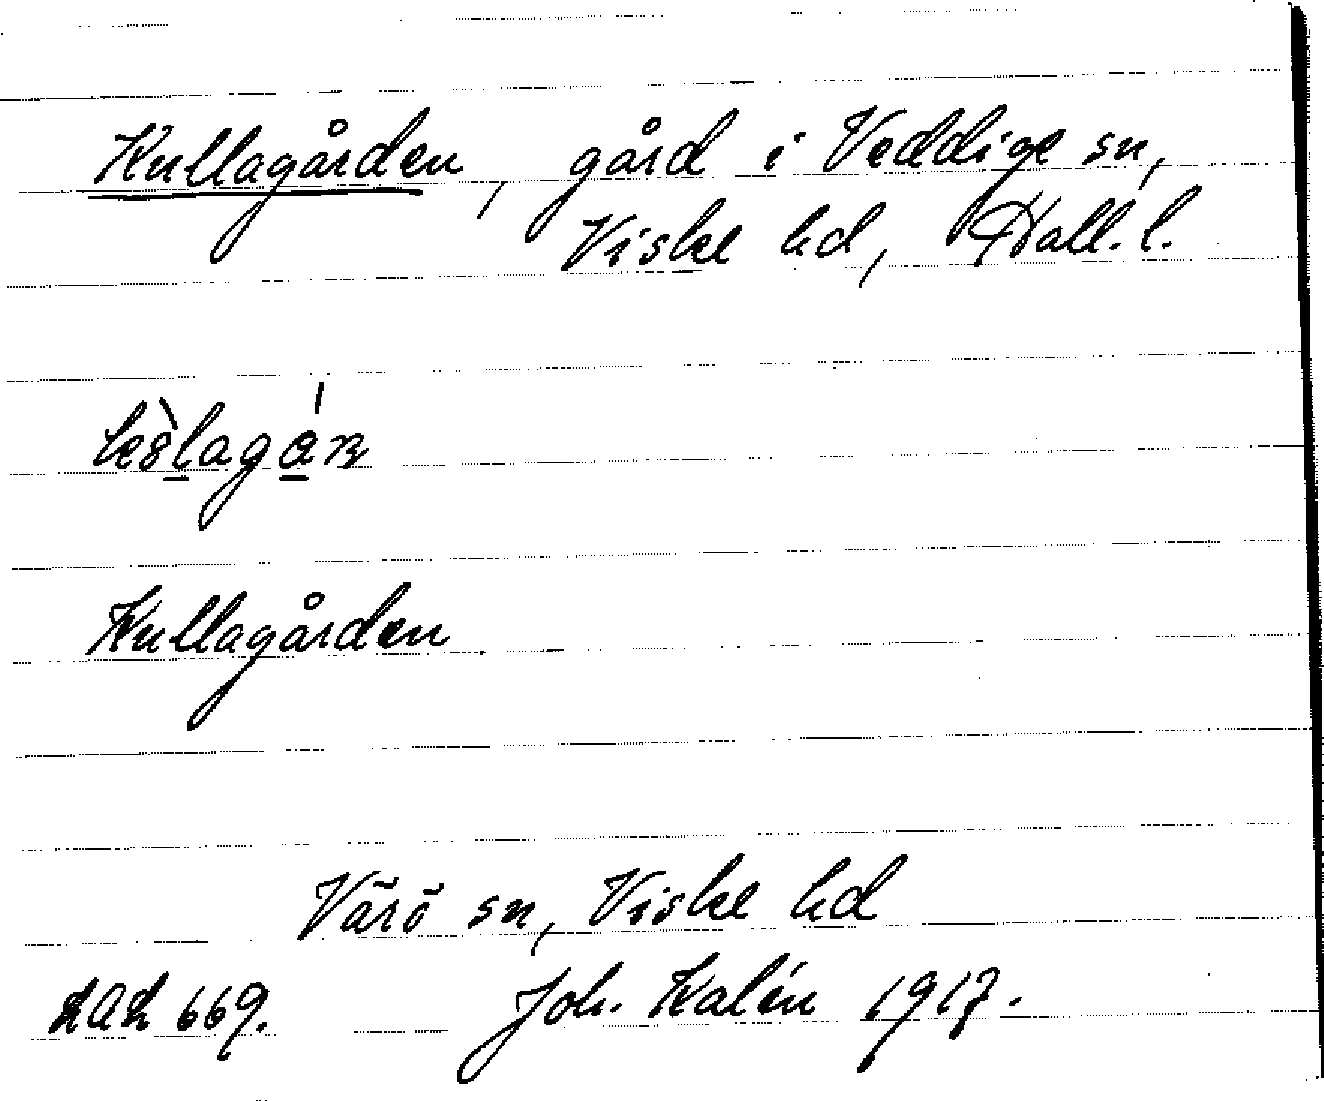 Kullagården, gård i Veddige sn,
Viske hd, Hall. l.
Kullagården
Väsö sn, Viske hd
669. Joh. Kalén 1917.